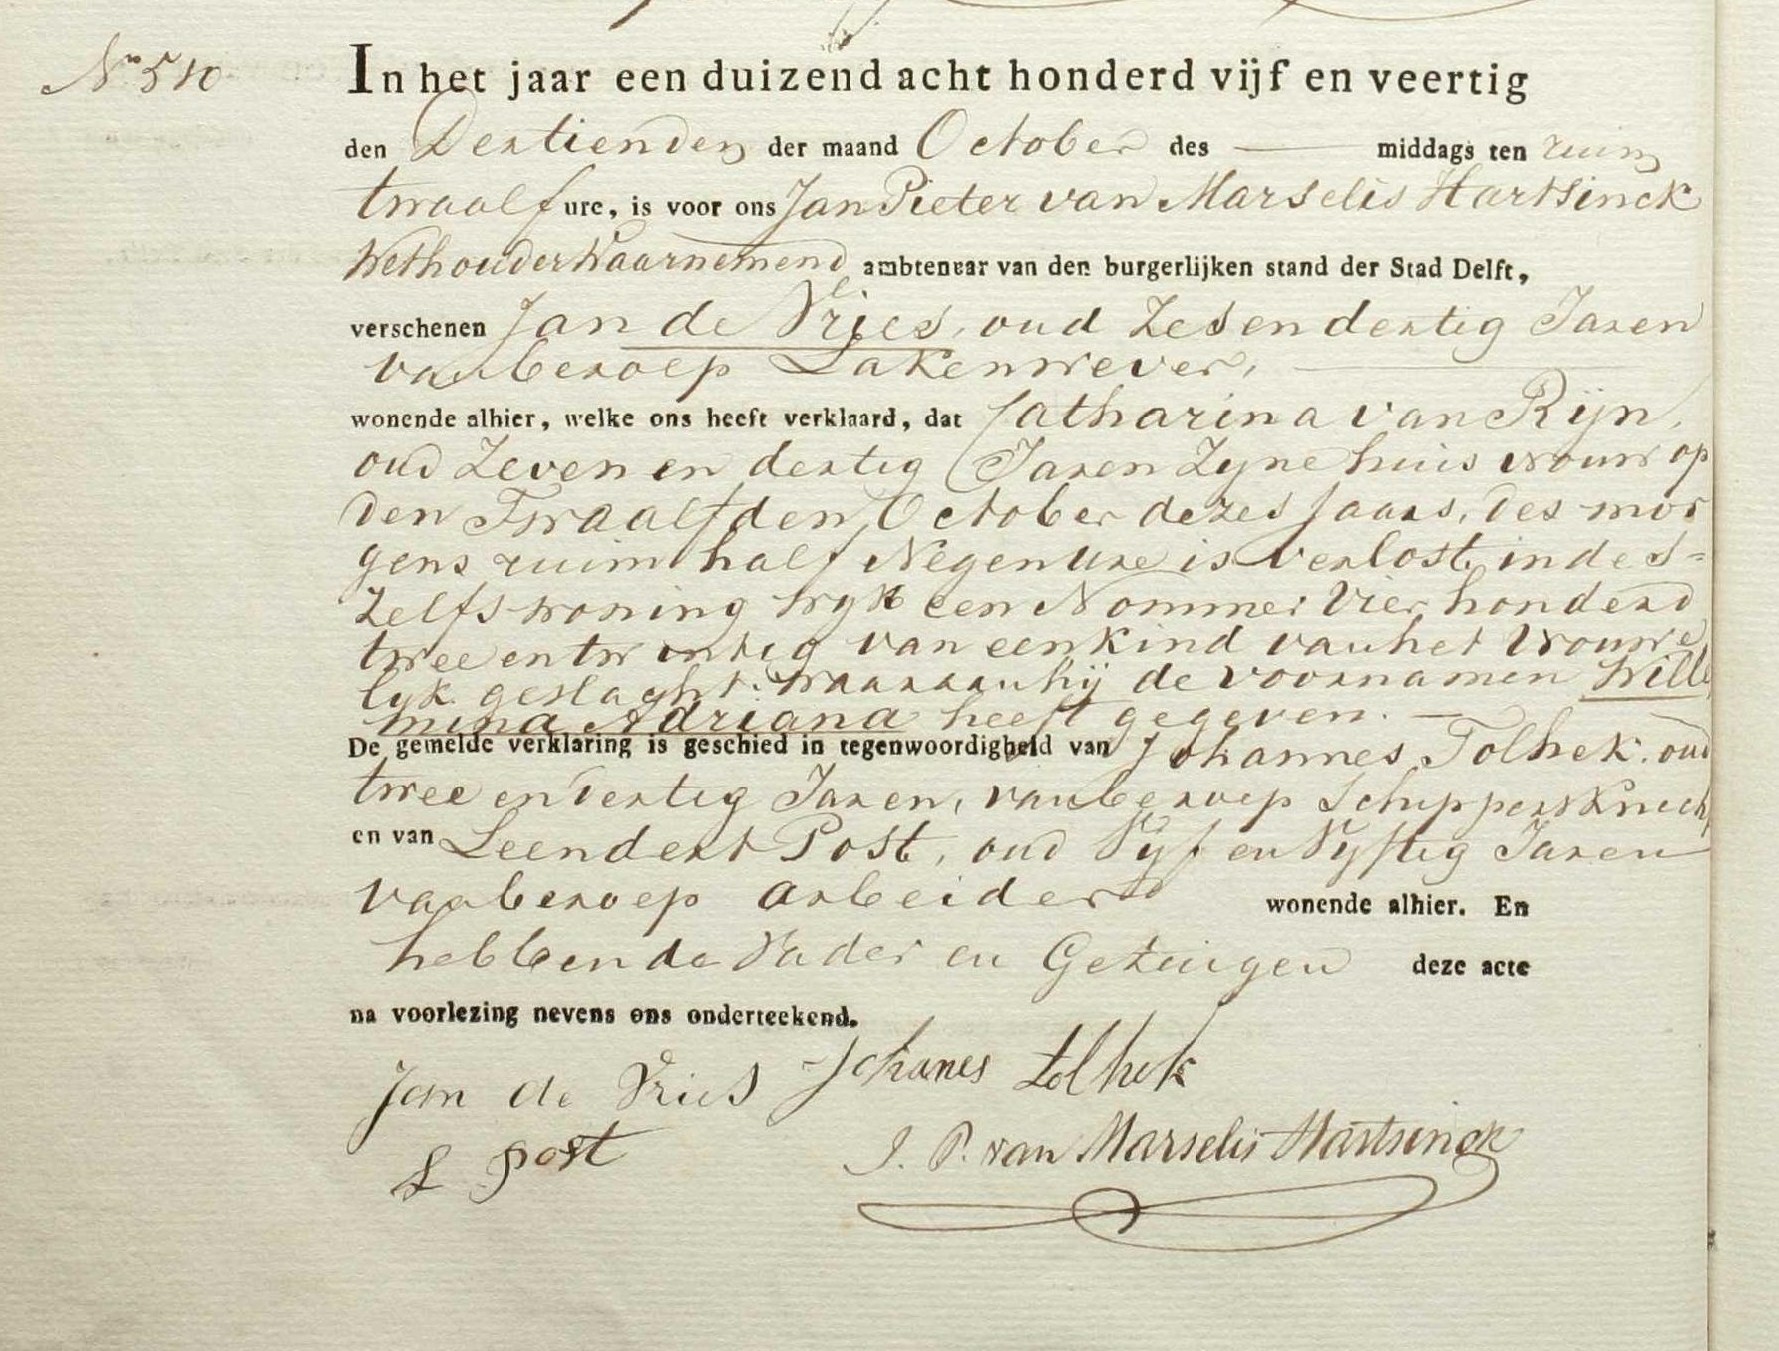 No 510
In het jaar een duizend acht honderd vijf en veertig
den Dertienden der maand October des — middags ten ruim
twaalf ure, is voor ons Jan Pieter van Marselis Hartsinck
Wethouder Waarnemend ambtenaar van den burgerlijken stand der Stad Delft,
verschenen Jan de Vries, oud Zes en dertig Jaren
van beroep Lakenwever, —
wonende alhier, welke ons heeft verklaard, dat Catharina van Rijn,
oud Zeven en dertig Jaren Zyne huisvrouw op
den Twaalfden October dezes Jaars, des mor
gens ruim half Negen Ure is verlost, in des-
Zelfs woning Wyk een Nommer Vierhonderd
twee en twintig van een kind van het Vrouwe
lyk geslacht. Waaraan hij de voornamen Wille
mina Adriana heeft gegeven. —
De gemelde verklaring is geschied in tegenwoordigheid van Johannes Tolhek. oud
twee en dertig Jaren, van beroep Schippersknecht
en van Leendert Post, oud Vyf en Vyftig Jaren
van beroep arbeider wonende alhier. En
hebben de Vader en Getuigen deze acte
na voorlezing nevens ons onderteekend.
Jan de Vries Johanes tolhek
L post J. P. van Marselis Hartsinck